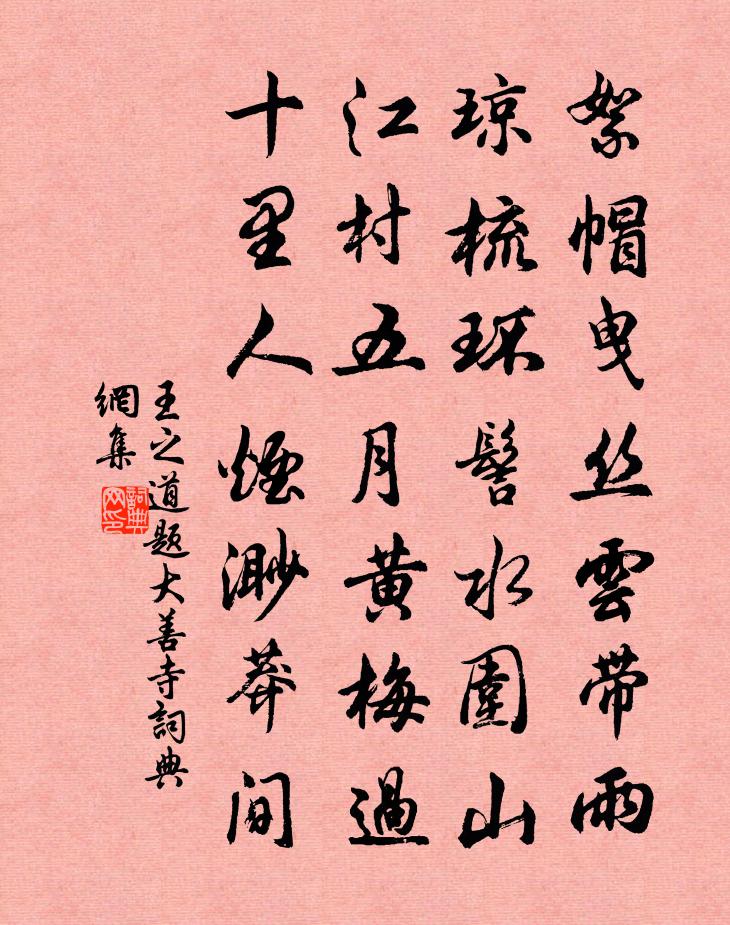 絮帽曳丝雲带雨
琼梳环髻水圍山
江村五月黄梅過
十里人煙渺莽间
王之道题大善寺詞典
網集
詞典网印